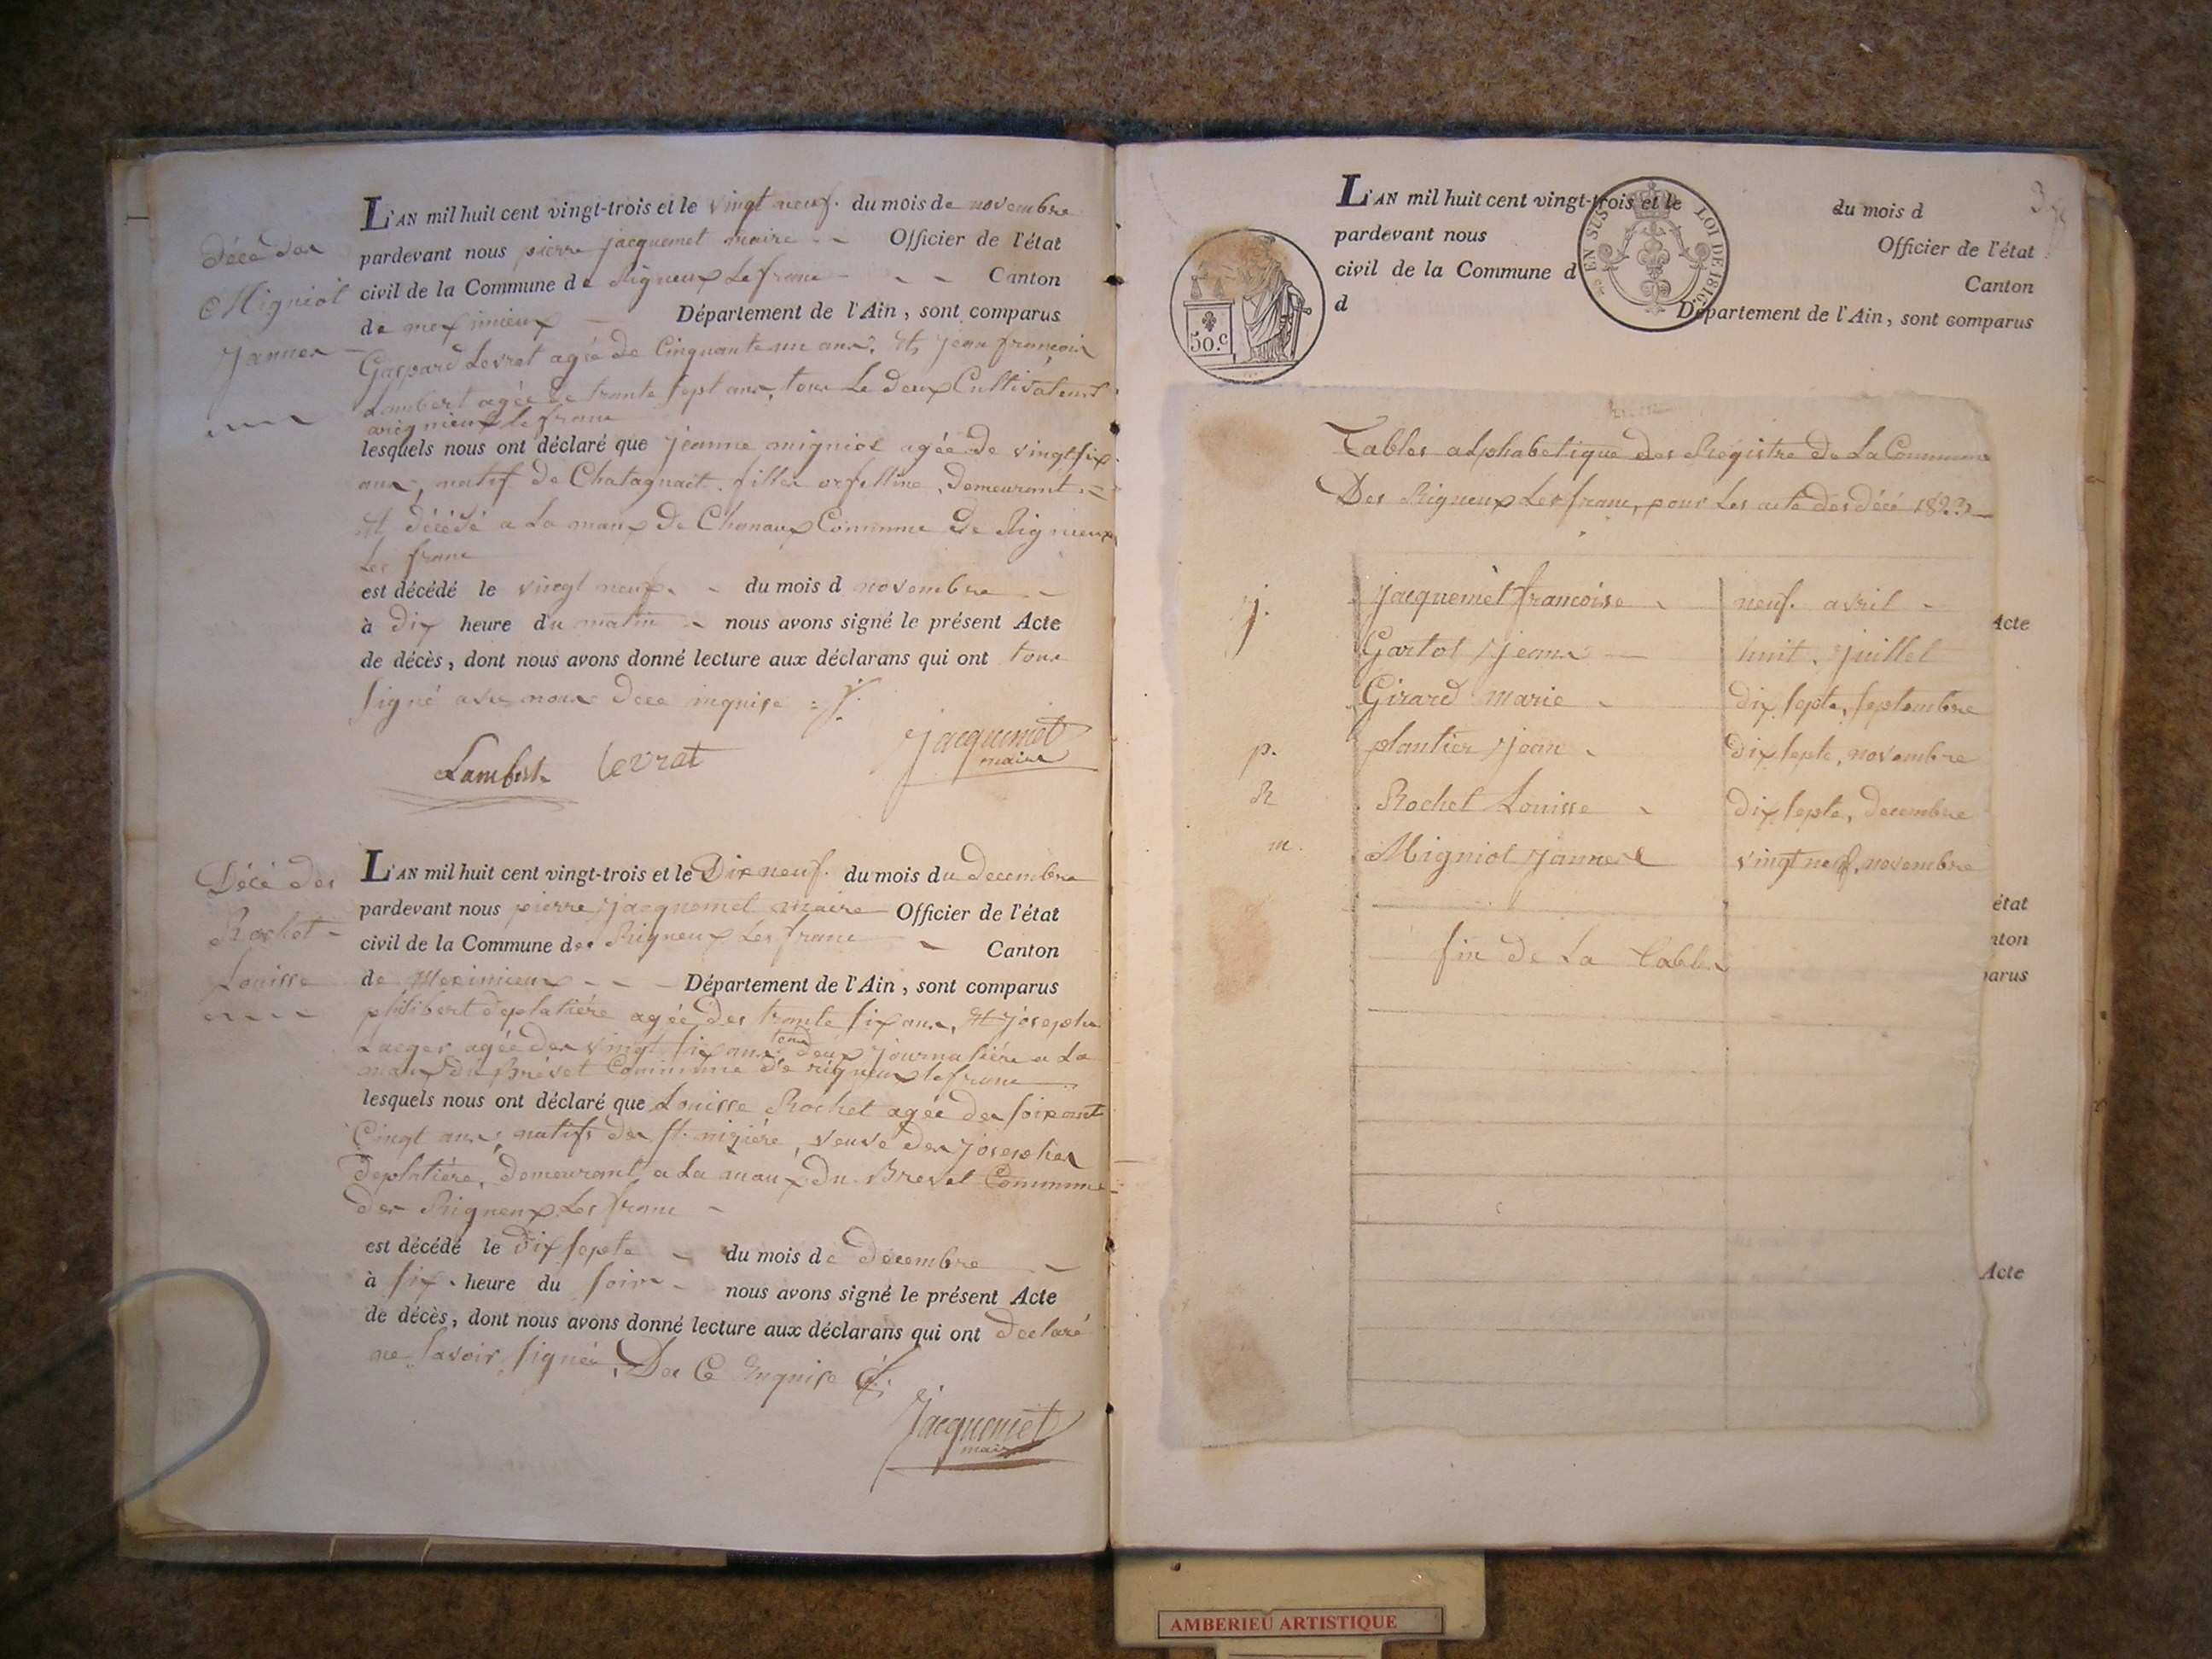 Décé des
Migniot
Jannes
L'AN mil huit cent vingt-trois et le vingt neuf. du mois de novembre
pardevant nous pierre jacquemet maire Officier de l'état
civil de la Commune de Rigneux Le franc Canton
de meximieux Département de l'Ain, sont comparus
Gaspard Levrat agée de Cinquante un ans, Et jean françois
Lambert agée de trante sept ans, tous Le deux Cultivateurs
a rigneux le franc
lesquels nous ont déclaré que jeanne migniot agée de vingt six
ans, natif de Chatagnait filles orfelline, demeurant
Et décédé a La maux De Chanaux Commune De Rignieux
Les franc
est décédé le vingt neuf du mois d novembre
à dix heure du matin nous avons signé le présent Acte
de décès, dont nous avons donné lecture aux déclarans qui ont tous
signé avec nous dece inquise
Lambert Levrat Jacquemet
maire
Décé des
Rochet
Louisse
L'AN mil huit cent vingt-trois et le Dix neuf. du mois du decembre
pardevant nous pierre jacquemet maire Officier de l'état
civil de la Commune des Rigneux Les franc Canton
de Meximieux Département de l'Ain, sont comparus
philibert deplatiére agée des trante six ans, Et joseph
agée des vingt six ans tous deux journatiére a La
maux du Brevet Commune de rigneux le franc
lesquels nous ont déclaré que Louisse Rochet agée des soixant
Cingt ans, natifs des st. niziére, veuve des josephes
deplatiére, demeurant a La maux Du Brevet Commune
des Rigneux Les franc
est décédé le dix septe du mois de Decembre
à six heure du soir nous avons signé le présent Acte
de décès, dont nous avons donné lecture aux déclarans qui ont declaré
ne savoir signée, De Ce Enquise
Jacquemet
maire
L'AN mil huit cent vingt-trois et le du mois d
pardevant nous Officier de l'état
civil de la Commune d Canton
d Département de l'Ain, sont comparus
EN SUS LOI DE 1816.
50.c
Tables alphabetique des Régistre de La Commune
Des Rigneux Les franc, pour Les acte des décé 1823
j. jacquemet francoise neuf. avril
Acte
Gartot jean huit. juillet
Girard marie dix septe, septembre
p. plantier jean dix septe, novembre
R Rochet Louisse dix septe, decembre
m. Migniot Jannes vingt neuf, novembre
état
fin de La table
nton
parus
Acte
AMBERIEU ARTISTIQUE